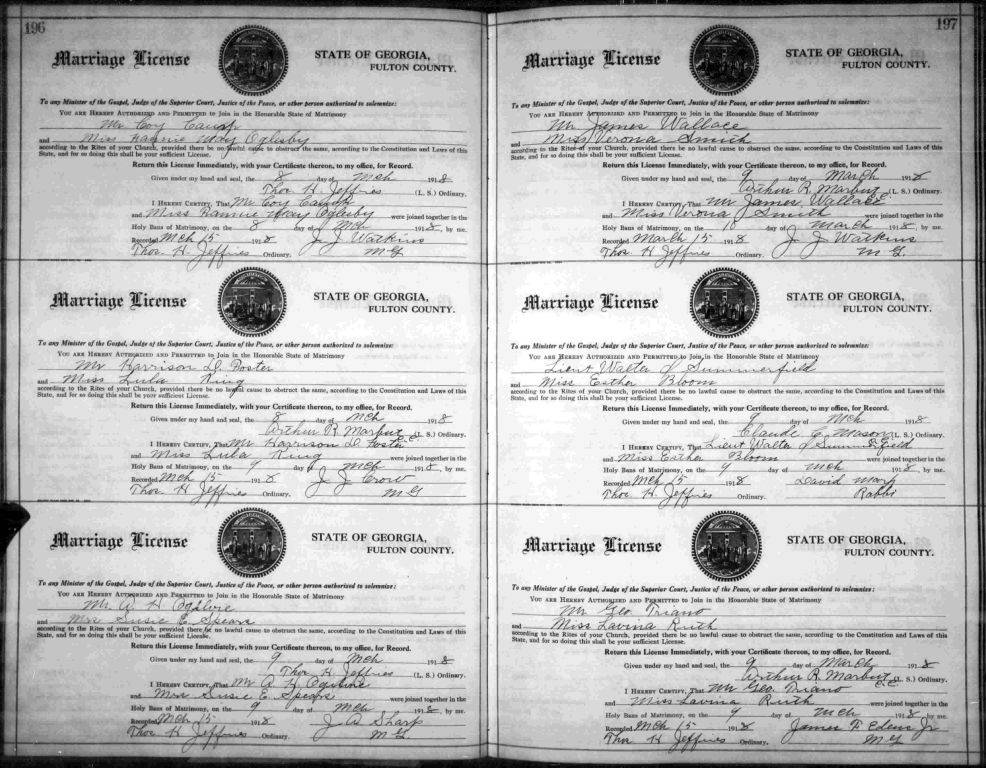 196
Marriage License
STATE OF GEORGIA,
FULTON COUNTY.
To any Minister of the Gospel, Judge of the Superior Court, Justice of the Peace, or other person authorized to solemnize:
YOU ARE HEREBY AUTHORIZED AND PERMITTED to Join in the Honorable State of Matrimony
Mr Coy
and Miss May Oglesby
according to the Rites of your Church, provided there be no lawful cause to obstruct the same, according to the Constitution and Laws of this
State, and for so doing this shall be your sufficient License.
Return this License Immediately, with your Certificate thereon, to my office, for Record.
Given under my hand and seal, the 8 day of Mch 1918
Thos H. Jeffries (L. S.) Ordinary.
I HEREBY CERTIFY, That Mr Coy
and Miss May Oglesby were joined together in the
Holy Bans of Matrimony, on the 8 day of Mch 1918, by me.
Recorded Mch 15 1918 J. J. Watkins
Thos. H. Jeffries Ordinary. M G.
Marriage License
STATE OF GEORGIA,
FULTON COUNTY.
To any Minister of the Gospel, Judge of the Superior Court, Justice of the Peace, or other person authorized to solemnize:
YOU ARE HEREBY AUTHORIZED AND PERMITTED to Join in the Honorable State of Matrimony
Mr Harrison D. Foster
and Miss Lula King
according to the Rites of your Church, provided there be no lawful cause to obstruct the same, according to the Constitution and Laws of this
State, and for so doing this shall be your sufficient License.
Return this License Immediately, with your Certificate thereon, to my office, for Record.
Given under my hand and seal, the 8 day of Mch 1918
Arthur R. Marbut C.C. (L. S.) Ordinary.
I HEREBY CERTIFY, That Mr Harrison D. Foster
and Miss Lula King were joined together in the
Holy Bans of Matrimony, on the 9 day of Mch 1918, by me.
Recorded Mch 15 1918 J. J. Crow
Thos H. Jeffries Ordinary. M G
Marriage License
STATE OF GEORGIA,
FULTON COUNTY.
To any Minister of the Gospel, Judge of the Superior Court, Justice of the Peace, or other person authorized to solemnize:
YOU ARE HEREBY AUTHORIZED AND PERMITTED to Join in the Honorable State of Matrimony
Mr. A H Ogilvie
and Mrs Susie E. Spears
according to the Rites of your Church, provided there be no lawful cause to obstruct the same, according to the Constitution and Laws of this
State, and for so doing this shall be your sufficient License.
Return this License Immediately, with your Certificate thereon, to my office, for Record.
Given under my hand and seal, the 9 day of Mch 1918
Thos H. Jeffries (L. S.) Ordinary.
I HEREBY CERTIFY, That Mr A H Ogilvie
and Mrs Susie E Spears were joined together in the
Holy Bans of Matrimony, on the 9 day of Mch 1918, by me.
Recorded Mch 15 1918 J. A Sharp
Thos H. Jeffries Ordinary. M G.
197
Marriage License
STATE OF GEORGIA,
FULTON COUNTY.
To any Minister of the Gospel, Judge of the Superior Court, Justice of the Peace, or other person authorized to solemnize:
YOU ARE HEREBY AUTHORIZED AND PERMITTED to Join in the Honorable State of Matrimony
Mr. James Wallace
and Miss Verona Smith
according to the Rites of your Church, provided there be no lawful cause to obstruct the same, according to the Constitution and Laws of this
State, and for so doing this shall be your sufficient License.
Return this License Immediately, with your Certificate thereon, to my office, for Record.
Given under my hand and seal, the 9 day of March 1918
Arthur R. Marbut (L. S.) Ordinary.
I HEREBY CERTIFY, That Mr James Wallace
and Miss Verona Smith were joined together in the
Holy Bans of Matrimony, on the 10 day of March 1918, by me.
Recorded March 15 1918 J. J Watkins
Thos H. Jeffries Ordinary. M G.
Marriage License
STATE OF GEORGIA,
FULTON COUNTY.
To any Minister of the Gospel, Judge of the Superior Court, Justice of the Peace, or other person authorized to solemnize:
YOU ARE HEREBY AUTHORIZED AND PERMITTED to Join in the Honorable State of Matrimony
Lieut Walter J Summerfield
and Miss Esther Bloom
according to the Rites of your Church, provided there be no lawful cause to obstruct the same, according to the Constitution and Laws of this
State, and for so doing this shall be your sufficient License.
Return this License Immediately, with your Certificate thereon, to my office, for Record.
Given under my hand and seal, the 9 day of Mch 1918
Claude C. Mason C.C. (L. S.) Ordinary.
I HEREBY CERTIFY, That Lieut Walter J Summerfield
and Miss Esther Bloom were joined together in the
Holy Bans of Matrimony, on the 9 day of Mch 1918, by me.
Recorded Mch 15 1918 David Marx
Thos. H. Jeffries Ordinary. Rabbi
Marriage License
STATE OF GEORGIA,
FULTON COUNTY.
To any Minister of the Gospel, Judge of the Superior Court, Justice of the Peace, or other person authorized to solemnize:
YOU ARE HEREBY AUTHORIZED AND PERMITTED to Join in the Honorable State of Matrimony
Mr Geo. Triano
and Miss Lavina Ruth
according to the Rites of your Church, provided there be no lawful cause to obstruct the same, according to the Constitution and Laws of this
State, and for so doing this shall be your sufficient License.
Return this License Immediately, with your Certificate thereon, to my office, for Record.
Given under my hand and seal, the 9 day of March 1918
Arthur R. Marbut C.C. (L. S.) Ordinary.
I HEREBY CERTIFY, That Mr Geo. Triano
and Miss Lavina Ruth were joined together in the
Holy Bans of Matrimony, on the 9 day of Mch 1918, by me.
Recorded Mch 15 1918 James F. Edens Jr
Thos H. Jeffries Ordinary. M G